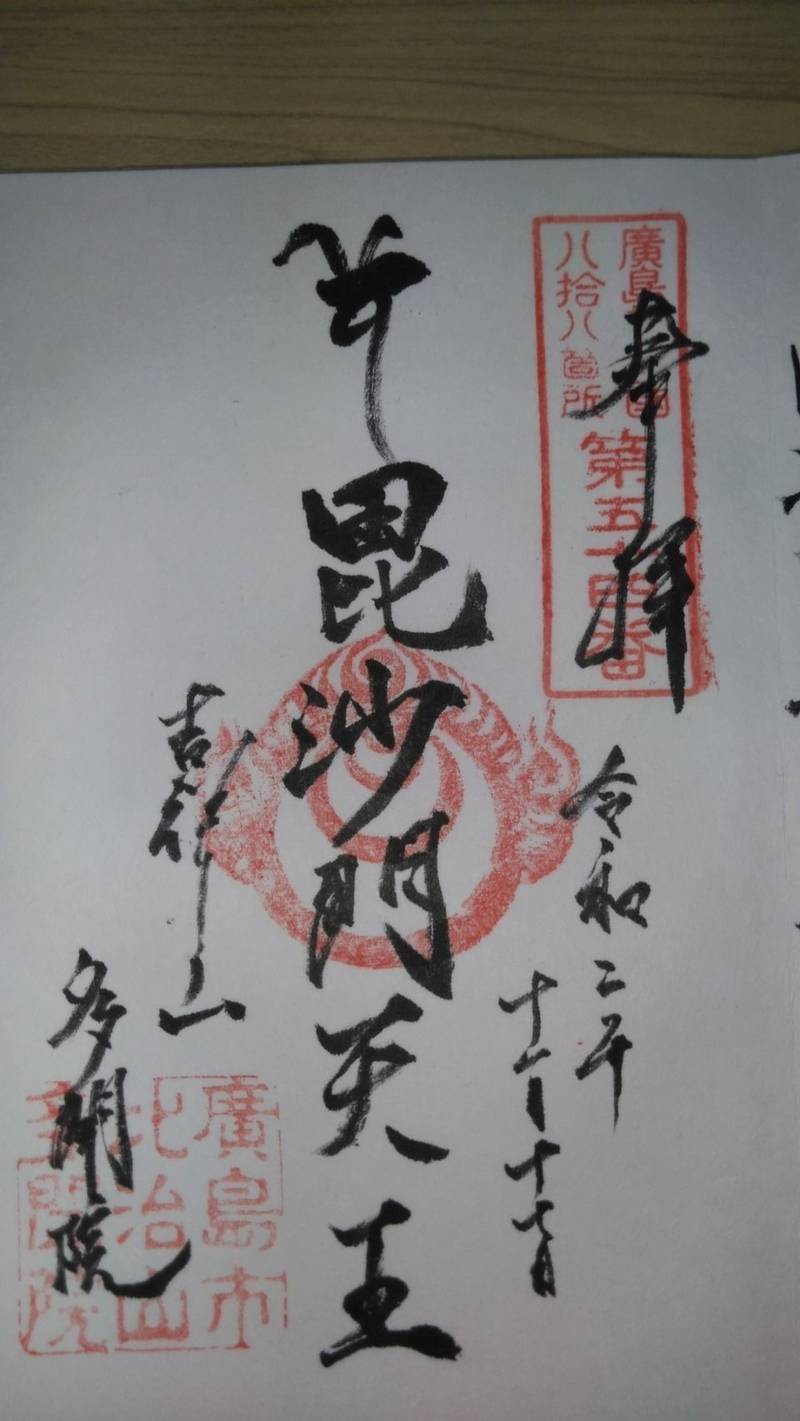 廣島
八拾八箇所
第五十四番
奉拝
令和二年
毘沙門天王
吉祥山
多聞院
廣島市
比治山
多聞院